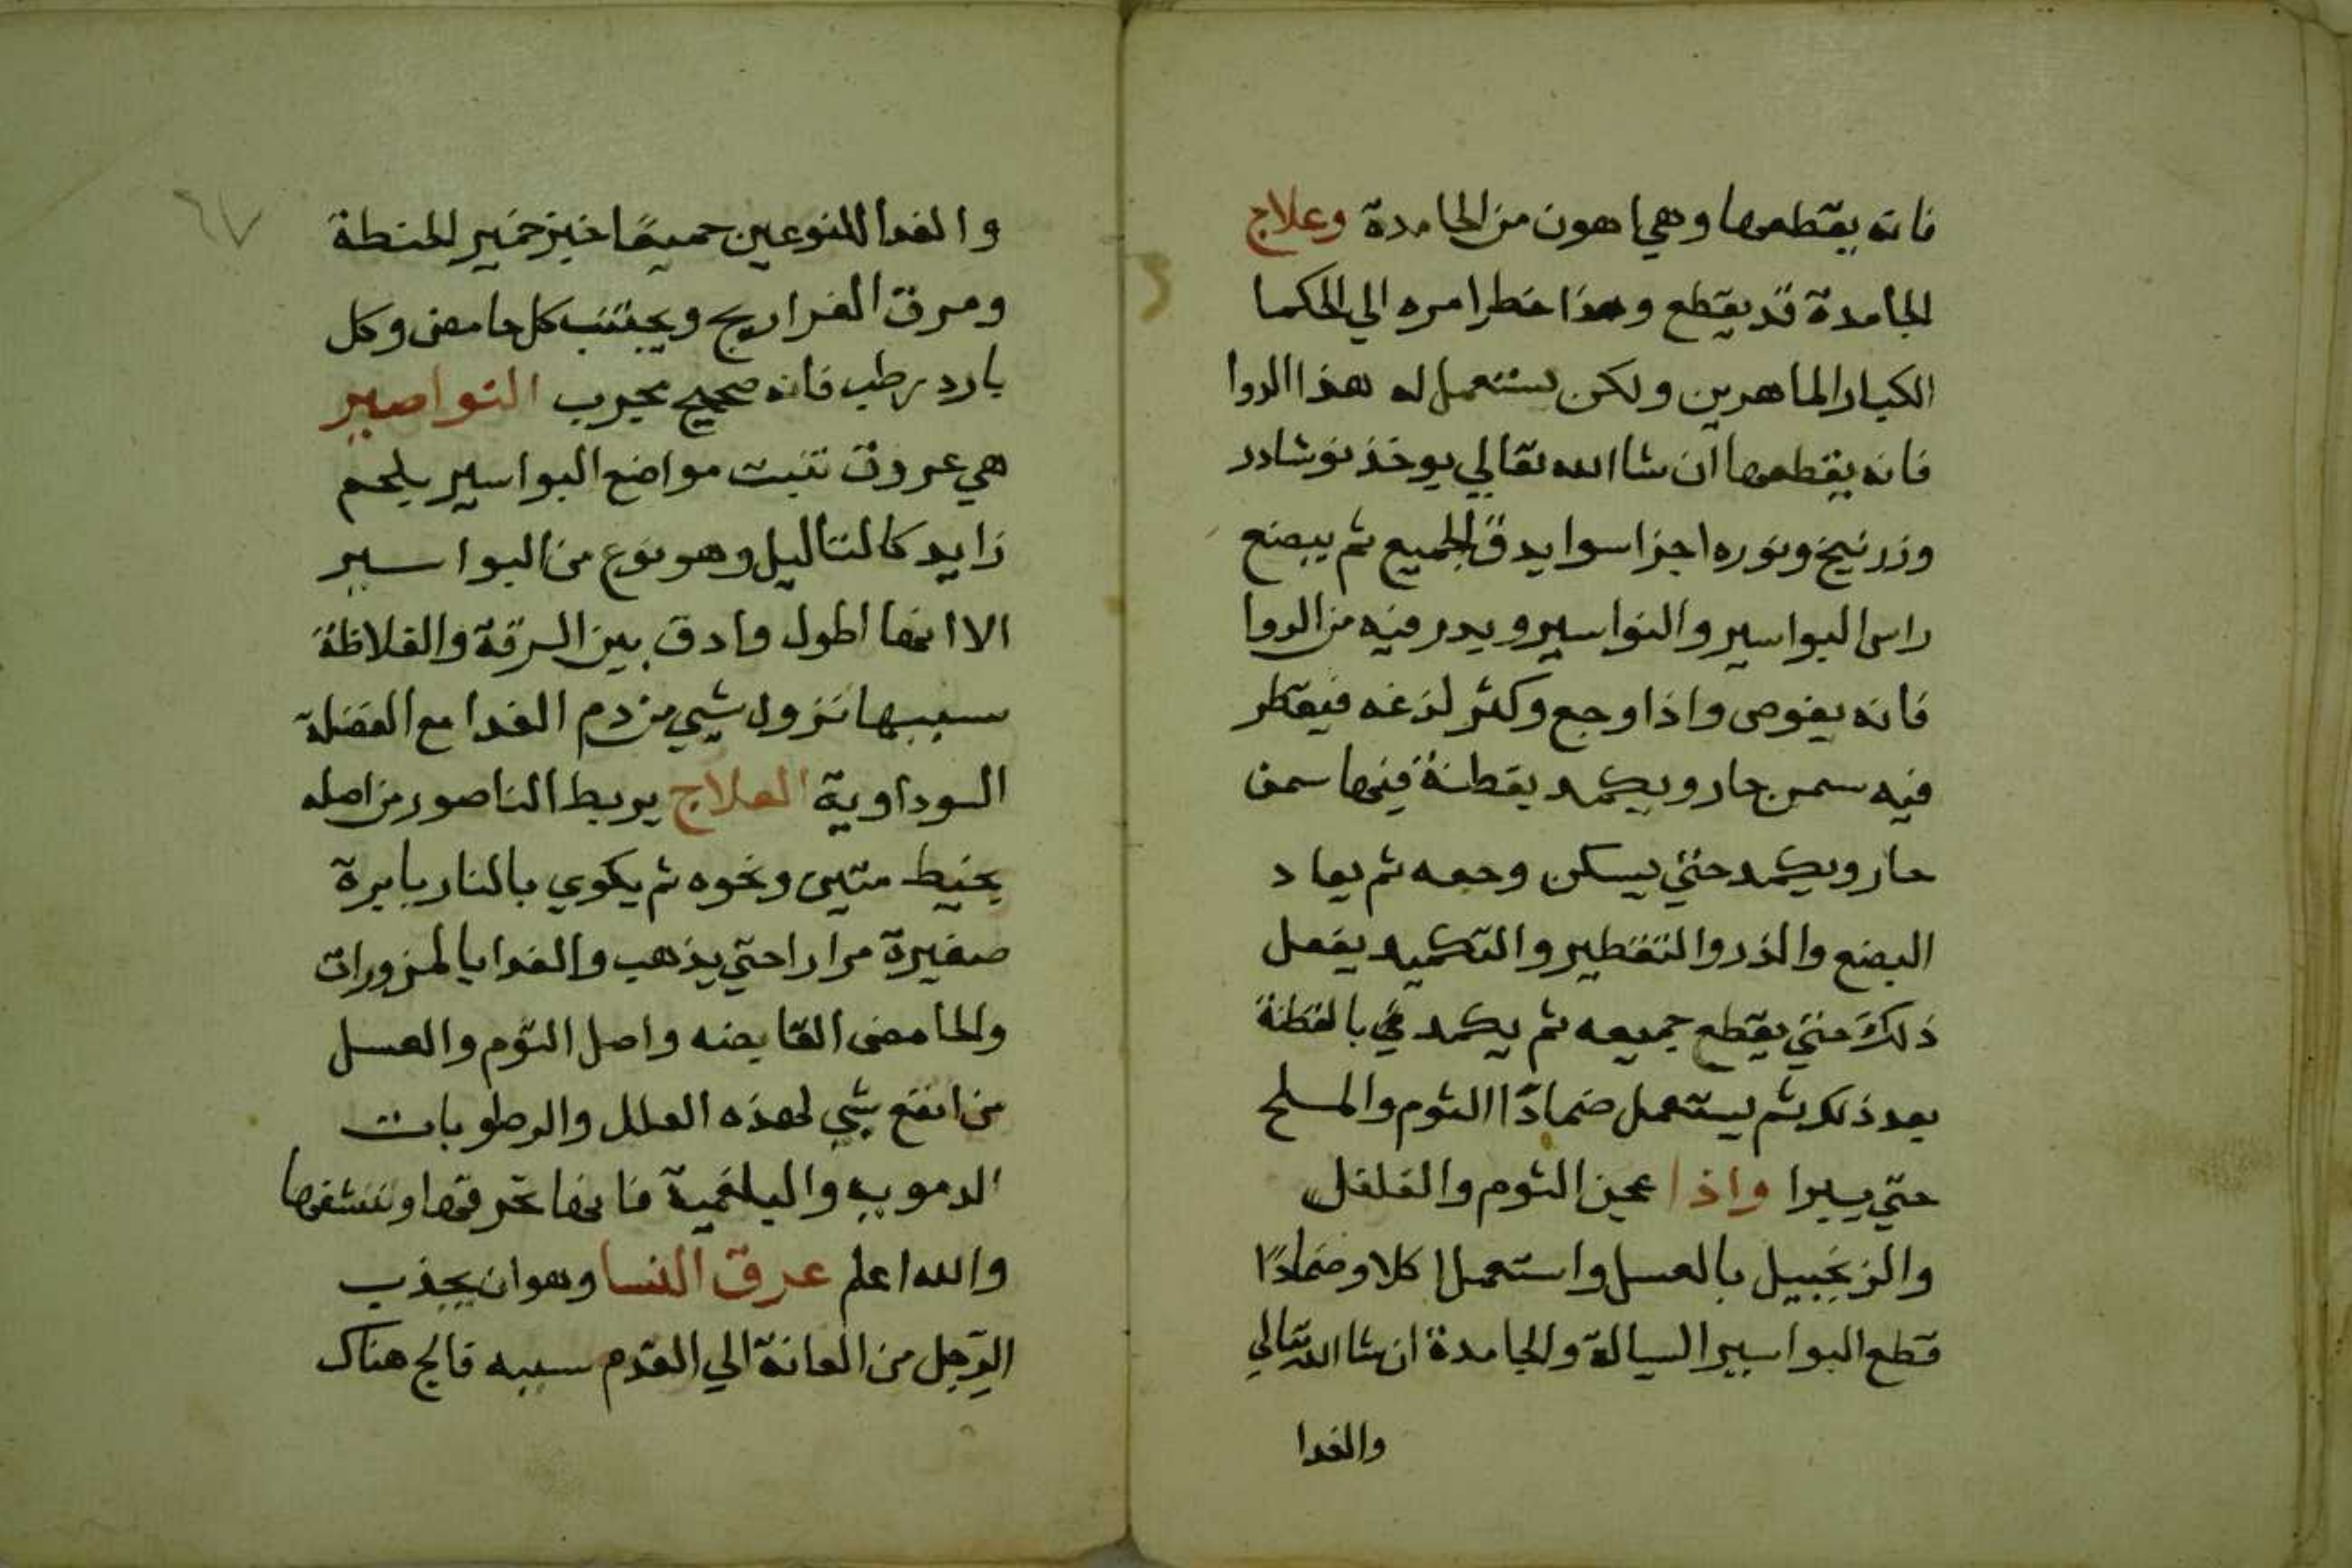 فانه يقطعها وهي اهون من الجامدة وعلاج
الجامدة قد يقطع وهذا خطر امره الي الحكما
الكبار الماهرين ولكن يستعمل له هذا الدوا
فانه يقطعها ان شا الله تعالي يوخذ نوشادر
وزرنيخ ونوره اجزا سوا يدق الجميع ثم يبضع
راس البواسير والنواسير ويدر فيه من الدوا
فانه يغوص واذا وجع وكثر لذغه فيقطر
فيه سمن حار ويكمد بقطنة فيها سمن
حار ويكمد حتي يسكن وجعه ثم يعاد
البضع والذر والتقطير والتكميد يفعل
ذلك حتي يقطع جميعه ثم يكمد في بالقطنة
بعد ذلك ثم يستعمل ضمادًا الثوم والملح
حتي يبرا واذا عجن الثوم والفلفل
والزنجبيل بالعسل واستعمل اكلا وضمادًا
قطع البواسير السيالة والجامدة ان شا الله تعالي
والغدا
٦٧
والغدا للنوعين جميعًا خبز خمير الحنطة
ومرق الفراريج ويجتنب كل حامض وكل
بارد رطب فانه صحيح مجرب النواصير
هي عروق تنبت مواضع البواسير بلحم
زايد كالتاليل وهو نوع من البواسير
الا انها اطول وادق بين الرقة والغلاظة
سببها نزول شي من دم الغدا مع الفضلة
السوداوية العلاج يربط الناصور من اصله
بخيط متين ونحوه ثم يكوي بالنار بابرة
صغيرة مرارا حتي يذهب والغدا بالمزورات
والحامض القابضه واصل الثوم والعسل
من انفع شي لهذه العلل والرطوبات
الدمويه والبلغمية فانها تحرقها وتنشفها
والله اعلم عرق النسا وهو ان يجذب
الرجل من العانة الي القدم سببه فالج هناك